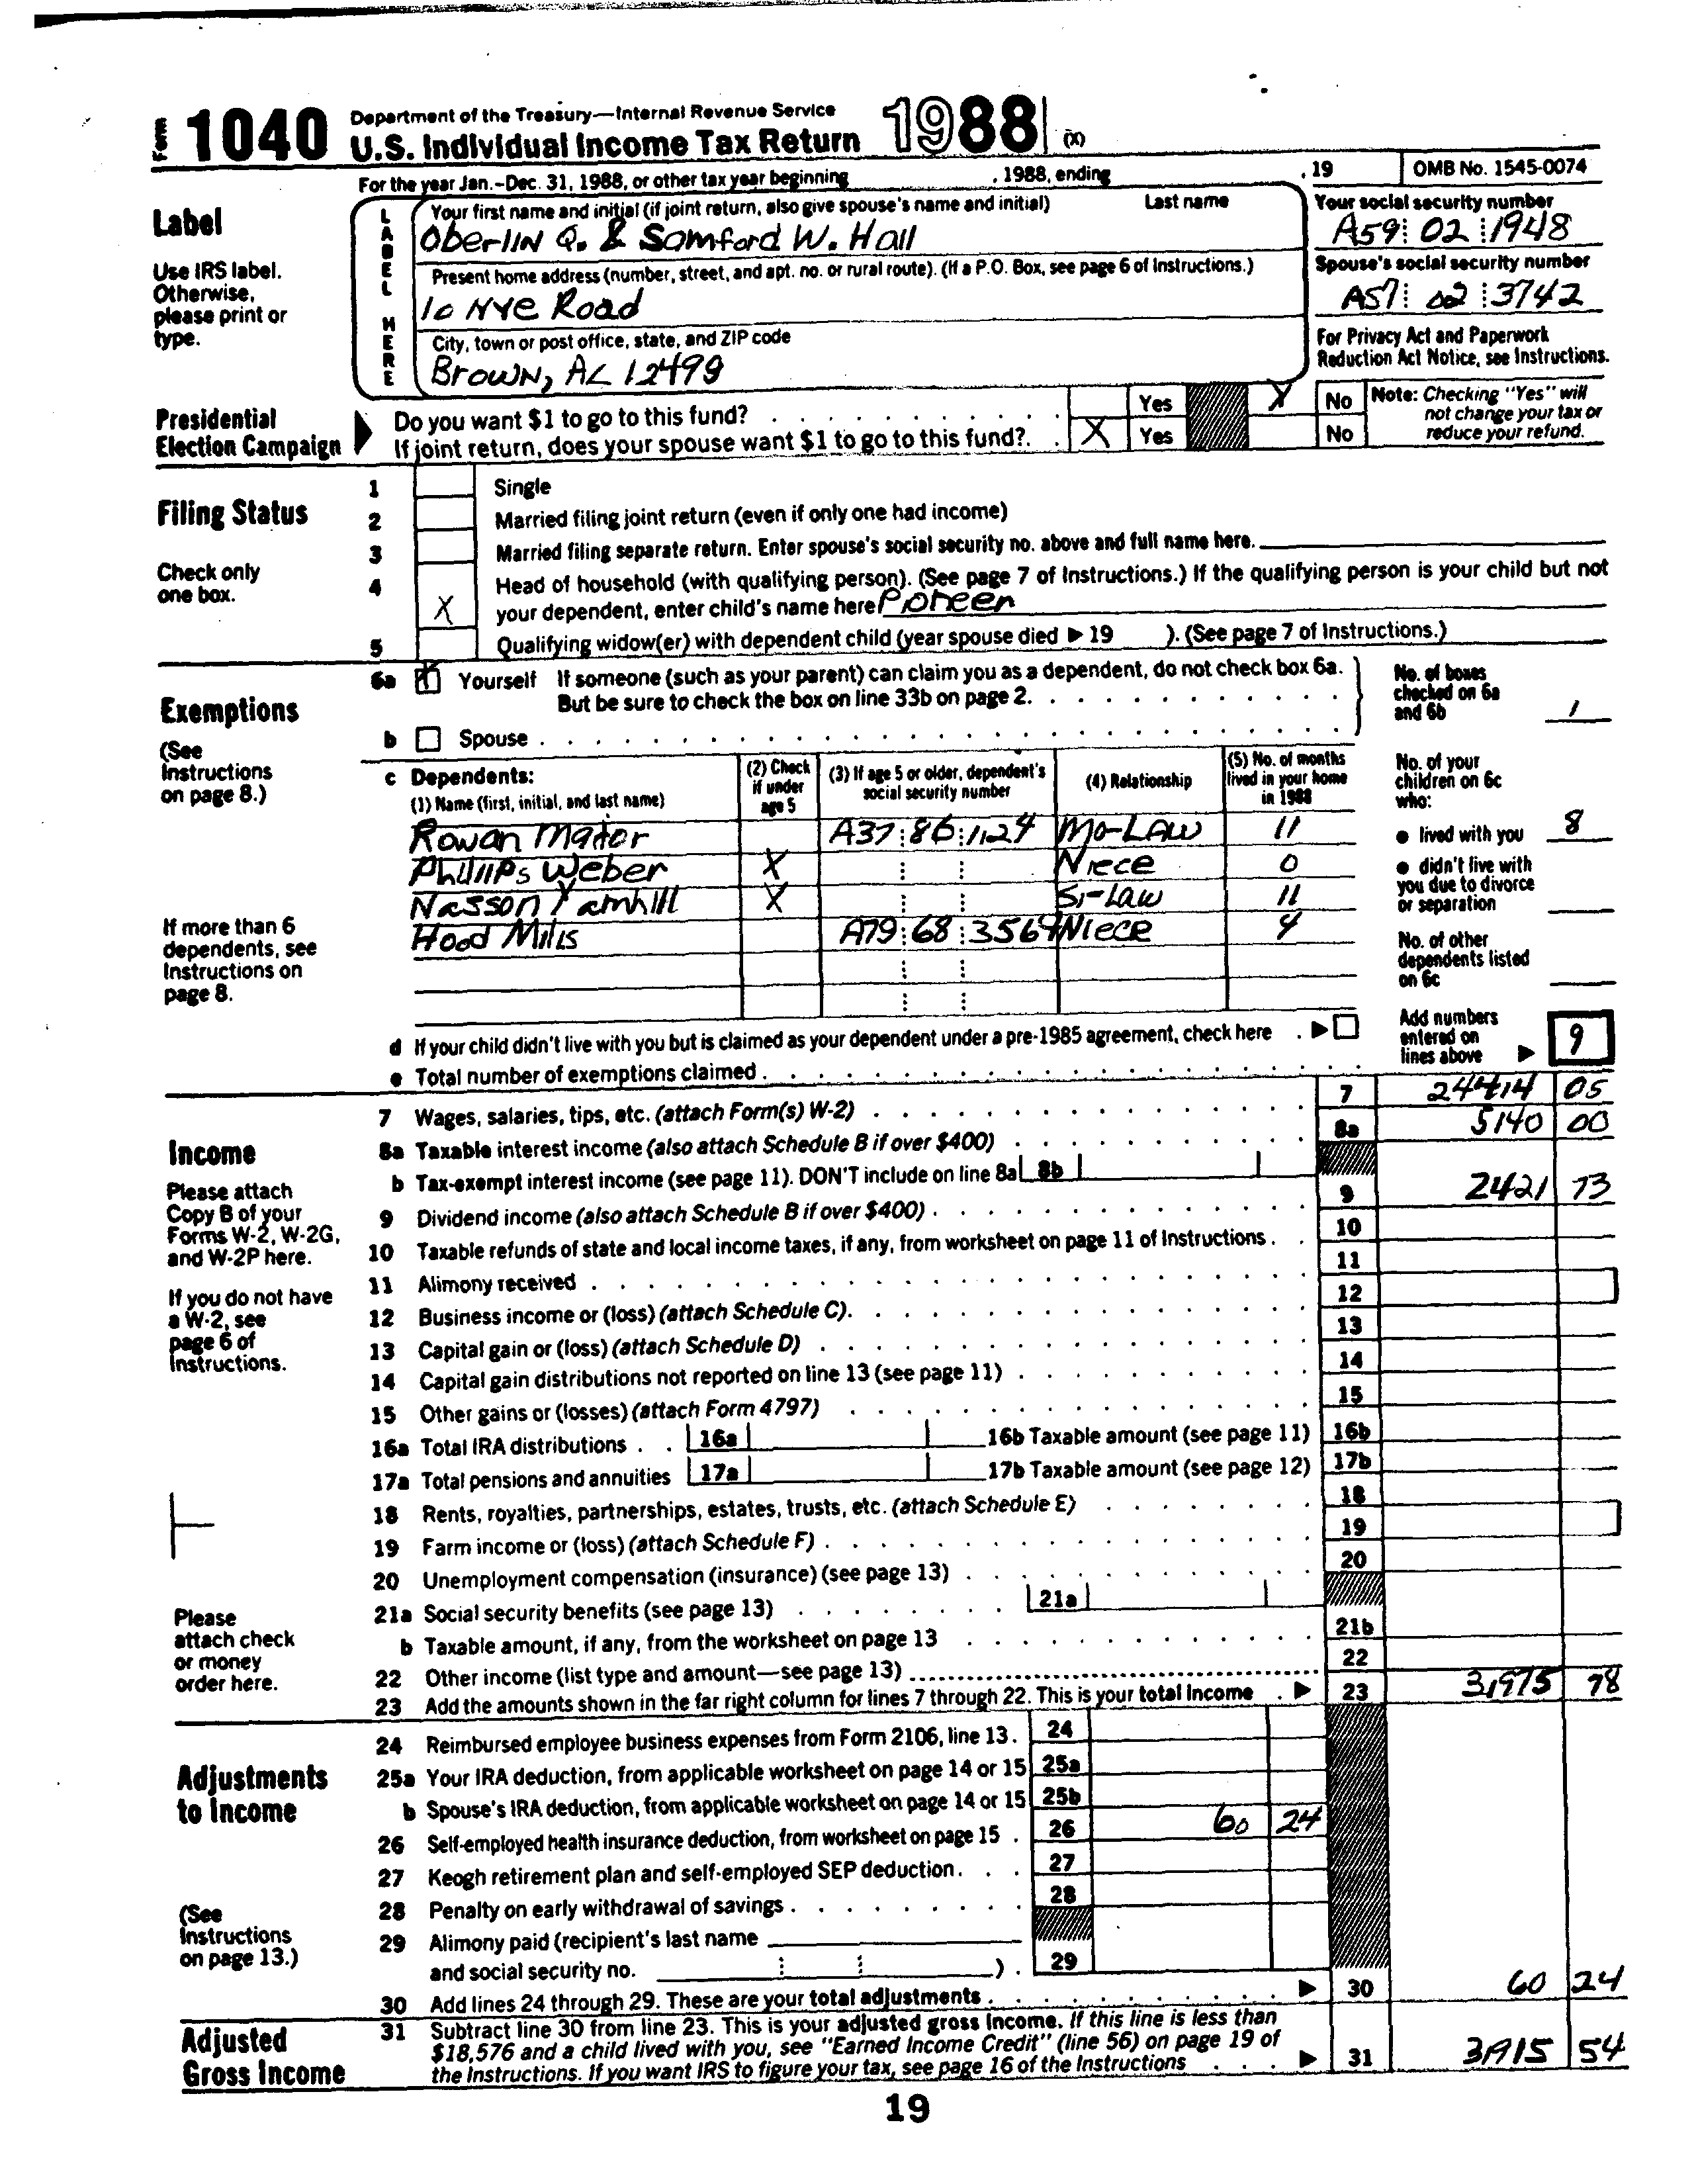 Form 1040 Department of the Treasury—Internal Revenue Service
U.S. Individual Income Tax Return 1988 (X)
For the year Jan.-Dec. 31, 1988, or other tax year beginning , 1988, ending , 19 OMB No. 1545-0074
Label
Use IRS label. Otherwise, please print or type.
LABEL HERE
Your first name and initial (if joint return, also give spouse's name and initial) Last name
Oberlin Q. & Samford W. Hall
Your social security number
A59 02 1948
Present home address (number, street, and apt. no. or rural route). (If a P.O. Box, see page 6 of Instructions.)
10 Nye Road
Spouse's social security number
A57 02 3742
City, town or post office, state, and ZIP code
Brown, AL 12499
For Privacy Act and Paperwork Reduction Act Notice, see Instructions.
Presidential Election Campaign
Do you want $1 to go to this fund? Yes X No
If joint return, does your spouse want $1 to go to this fund? X Yes No
Note: Checking "Yes" will not change your tax or reduce your refund.
Filing Status
Check only one box.
1 Single
2 Married filing joint return (even if only one had income)
3 Married filing separate return. Enter spouse's social security no. above and full name here.
4 X Head of household (with qualifying person). (See page 7 of Instructions.) If the qualifying person is your child but not
your dependent, enter child's name here
5 Qualifying widow(er) with dependent child (year spouse died ▶ 19 ). (See page 7 of Instructions.)
Exemptions
(See Instructions on page 8.)
6a X Yourself If someone (such as your parent) can claim you as a dependent, do not check box 6a.
But be sure to check the box on line 33b on page 2.
b Spouse
No. of boxes checked on 6a and 6b 1
c Dependents:
(1) Name (first, initial, and last name)
(2) Check if under age 5
(3) If age 5 or older, dependent's social security number
(4) Relationship
(5) No. of months lived in your home in 1988
Rowan Mator A37 86 1124 Mo-Law 11
Phillips Weber X Niece 0
Nasson Yamhill X Si-Law 11
Hood Mills A79 68 3564 Niece 4
No. of your children on 6c who:
• lived with you 8
• didn't live with you due to divorce or separation
No. of other dependents listed on 6c
If more than 6 dependents, see Instructions on page 8.
d If your child didn't live with you but is claimed as your dependent under a pre-1985 agreement, check here ▶
e Total number of exemptions claimed
Add numbers entered on lines above ▶ 9
Income
Please attach Copy B of your Forms W-2, W-2G, and W-2P here.
If you do not have a W-2, see page 6 of Instructions.
Please attach check or money order here.
7 Wages, salaries, tips, etc. (attach Form(s) W-2) 7 24414 05
8a Taxable interest income (also attach Schedule B if over $400) 8a 5140 00
b Tax-exempt interest income (see page 11). DON'T include on line 8a 8b
9 Dividend income (also attach Schedule B if over $400) 9 2421 73
10 Taxable refunds of state and local income taxes, if any, from worksheet on page 11 of Instructions 10
11 Alimony received 11
12 Business income or (loss) (attach Schedule C) 12
13 Capital gain or (loss) (attach Schedule D) 13
14 Capital gain distributions not reported on line 13 (see page 11) 14
15 Other gains or (losses) (attach Form 4797) 15
16a Total IRA distributions 16a 16b Taxable amount (see page 11) 16b
17a Total pensions and annuities 17a 17b Taxable amount (see page 12) 17b
18 Rents, royalties, partnerships, estates, trusts, etc. (attach Schedule E) 18
19 Farm income or (loss) (attach Schedule F) 19
20 Unemployment compensation (insurance) (see page 13) 20
21a Social security benefits (see page 13) 21a
b Taxable amount, if any, from the worksheet on page 13 21b
22 Other income (list type and amount—see page 13) 22
23 Add the amounts shown in the far right column for lines 7 through 22. This is your total income ▶ 23 31975 78
Adjustments to Income
(See Instructions on page 13.)
24 Reimbursed employee business expenses from Form 2106, line 13. 24
25a Your IRA deduction, from applicable worksheet on page 14 or 15 25a
b Spouse's IRA deduction, from applicable worksheet on page 14 or 15 25b
26 Self-employed health insurance deduction, from worksheet on page 15 26 60 24
27 Keogh retirement plan and self-employed SEP deduction 27
28 Penalty on early withdrawal of savings 28
29 Alimony paid (recipient's last name
and social security no. ) 29
30 Add lines 24 through 29. These are your total adjustments ▶ 30 60 24
Adjusted Gross Income
31 Subtract line 30 from line 23. This is your adjusted gross income. If this line is less than
$18,576 and a child lived with you, see "Earned Income Credit" (line 56) on page 19 of
the Instructions. If you want IRS to figure your tax, see page 16 of the Instructions ▶ 31 31915 54
19